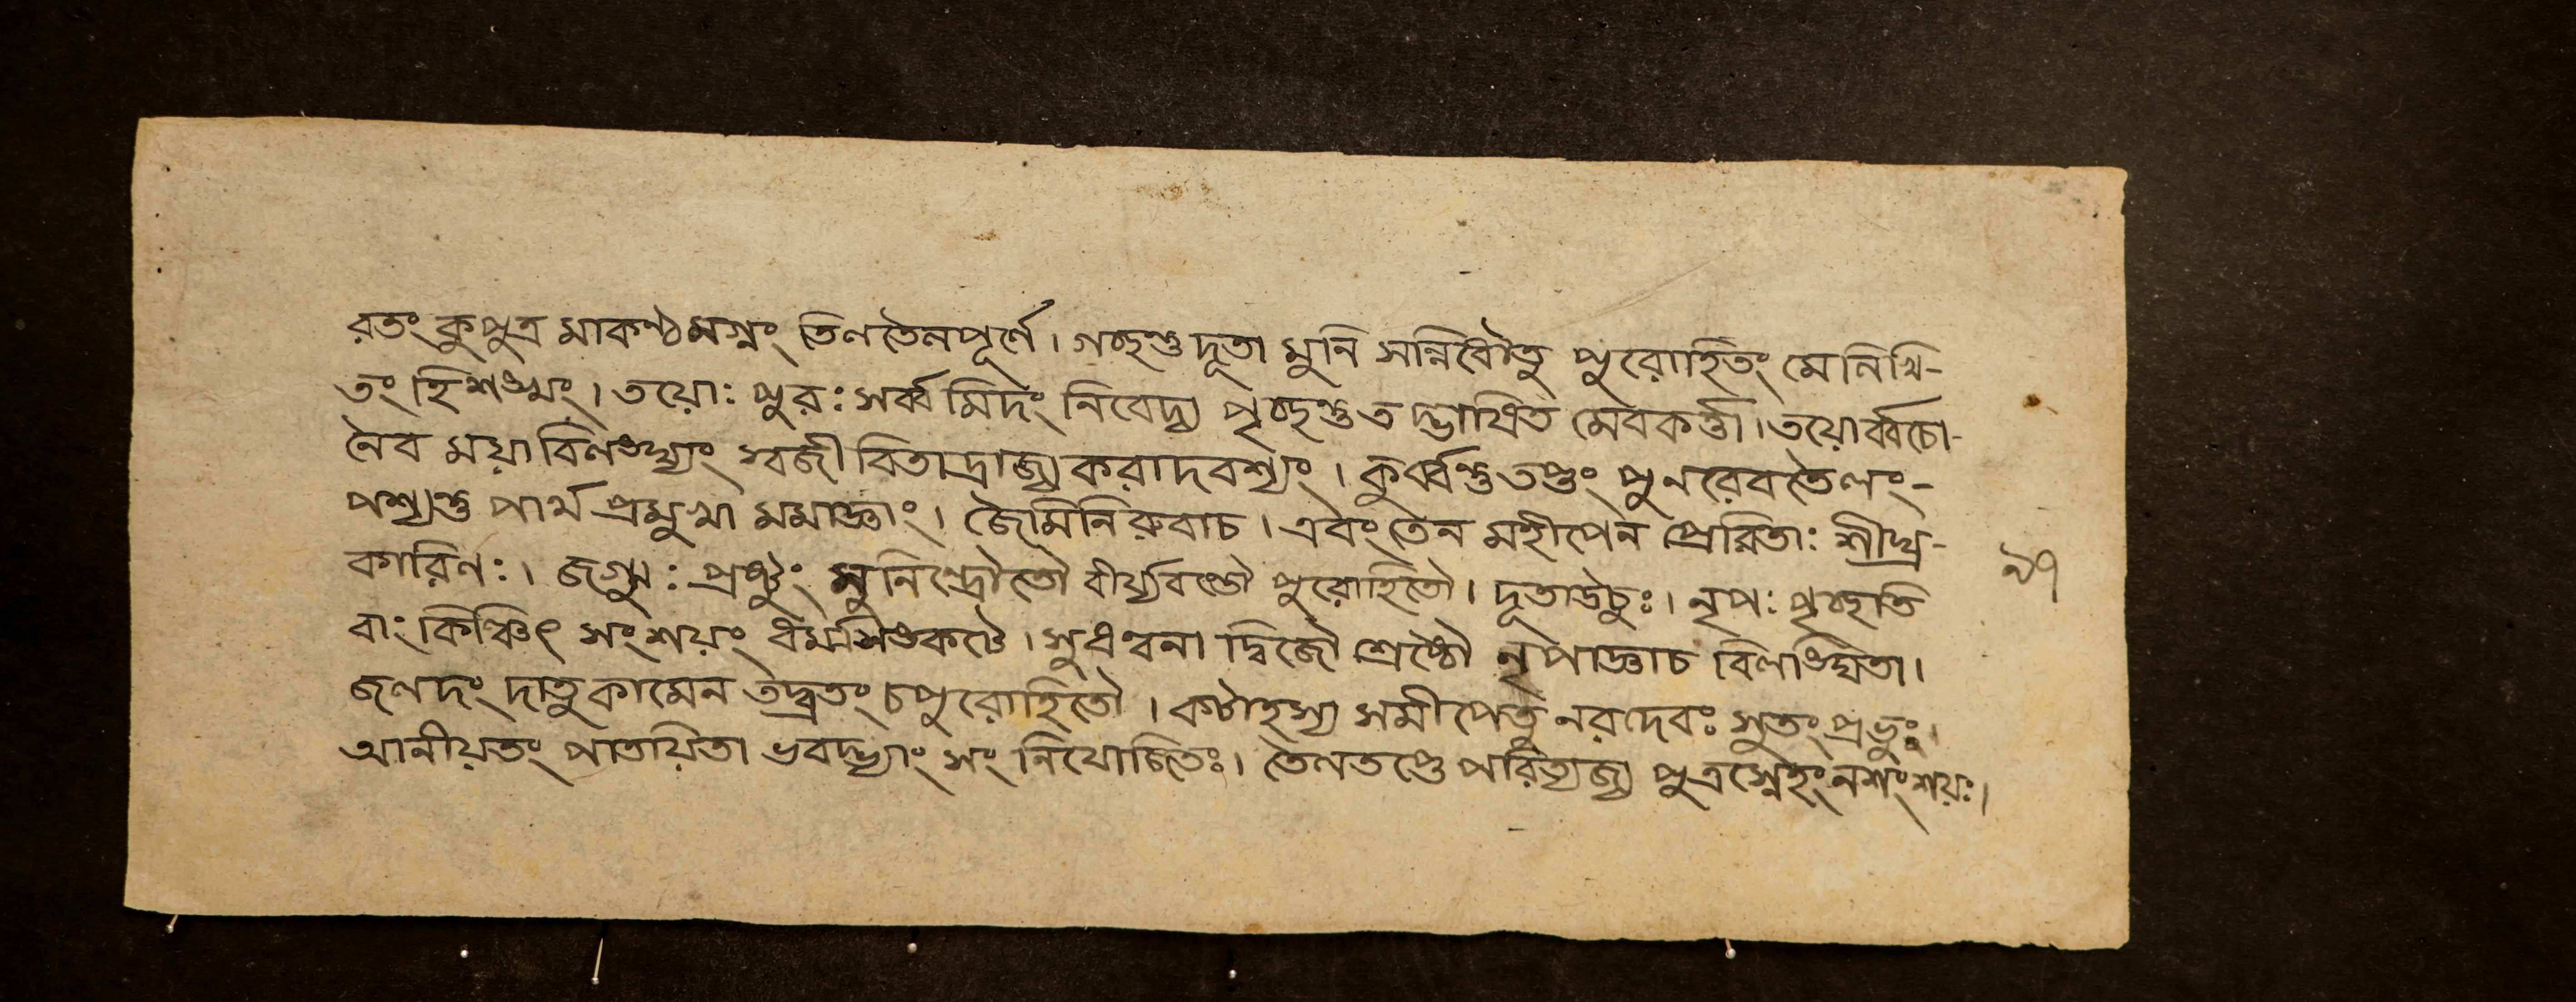 রতং কুপুত্র মাকণ্ঠমগ্নং তিলতৈলপূর্ণে। গচ্ছন্তু দূতা মুনি সন্নিধৌতু পুরোহিতং মেলিখি-
তং হিশঙ্খং। তয়োঃ পুরঃ সর্ব্ব মিদং নিবেদ্য পৃচ্ছন্তু ত দ্ভাষিত মেবকর্ত্তা। তয়োর্ব্বচো-
নৈব ময়াবিলঙ্ঘ্যং স্বজীবিতাদ্রাজ্যকরাদবশ্যং। কুর্ব্বন্তুতপ্তং পুনরেবতৈলং-
পশ্যন্তু পার্থ প্রমুখা মমাজ্ঞাং। জৈমিনি রুবাচ। এবংতেন মহীপেন প্রেরিতাঃ শীঘ্র-
কারিণঃ। জগ্মুঃ প্রষ্টুং মুনিন্দ্রৌতৌ বীর্য্যবন্তৌ পুরোহিতৌ। দূতাউচুঃ। নৃপঃ পৃচ্ছতি
বাং কিঞ্চিৎ সংশয়ং ধর্মসঙকটে। সুধন্বনা দ্বিজৌ শ্রেষ্ঠৌ নৃপাজ্ঞাচ বিলঙ্ঘিতা।
জলদং দাতুকামেন তদ্ব্রতং চপুরোহিতৌ। কটাহস্য সমীপেতু নরদেবঃ সুতং প্রভুঃ।
আনীয়তং পাতয়িতা ভবদ্ভ্যাং সং নিযোজিতঃ। তৈলতপ্তে পরিত্যজ্য পুত্রস্নেহং নশংশয়ঃ।
৯৭